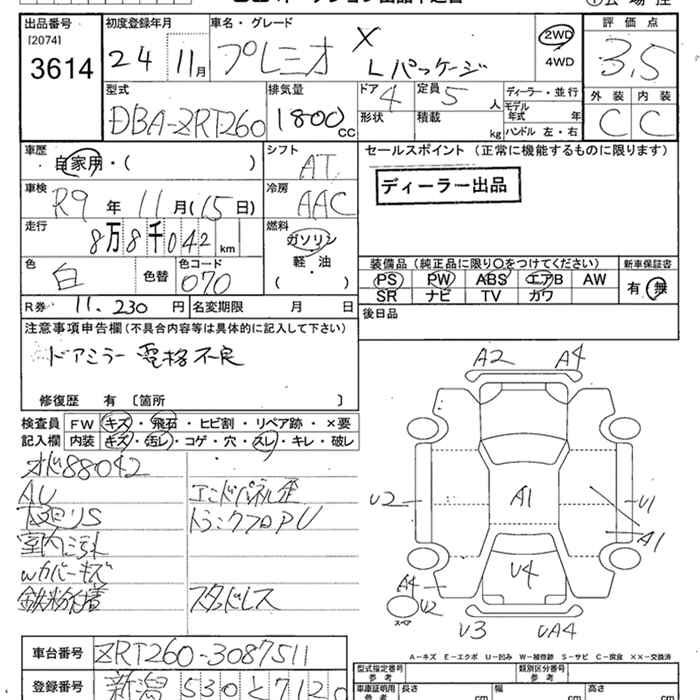 出品番号
[2074]
3614
初度登録年月
24 11月
車名・グレード
プレミオ
X
Lパッケージ
2WD
4WD
評価点
3.5
型式
DBA-ZRT260
排気量
1800 CC
ドア 4
定員 5 人
形状
積載 kg
ディーラー・並行
モデル年式 年
ハンドル 左・右
外装 内装
C C
車歴
自家用・( )
シフト
AT
セールスポイント (正常に機能するものに限ります)
ディーラー出品
車検
R9 年 11 月(15 日)
冷房
AAC
走行
8万8千042 km
燃料
ガソリン
軽・油
( )
色
白
色替
色コード
070
装備品(純正品に限り〇をつけてください)
新車保証書
PS PW ABS エアB AW
SR ナビ TV カワ
有・無
R券 11,230 円
名変期限 月 日
後日品
注意事項申告欄(不具合内容等は具体的に記入して下さい)
ドアミラー 電格不良
修復歴 有〔箇所 〕
検査員記入欄
FW キズ・飛石・ヒビ割・リペア跡・×要
内装 キズ・汚レ・コゲ・穴・スレ・キレ・破レ
オド88042
AU
下廻りS
室内ニゴレ
Wカバーキズ
鉄粉付着
エンドパネル歪
トランクフロアU
スタッドレス
A2 A4
U2 A1 U1
A1
U4
A4
U2
スペア
U3 UA4
A-キズ E-エクボ U-凹み W-補修跡 S-サビ C-腐食 ××-交換済
車台番号 ZRT260-3087511
登録番号 新潟 530 と 7120
型式指定番号
参考
類別区分番号
参考
車庫証明用
参考
長さ cm
幅 cm
高さ cm